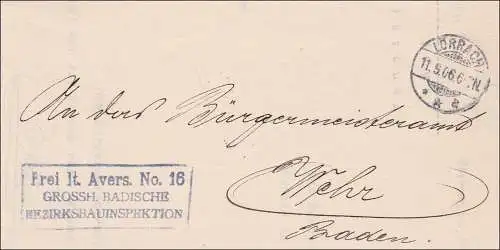 LÖRRACH
11.5.06.6-7N.
An das Bürgermeisteramt
Frei lt. Avers. No. 16
GROSSH. BADISCHE
BEZIRKSBAUINSPEKTION
Wehr
Baden.